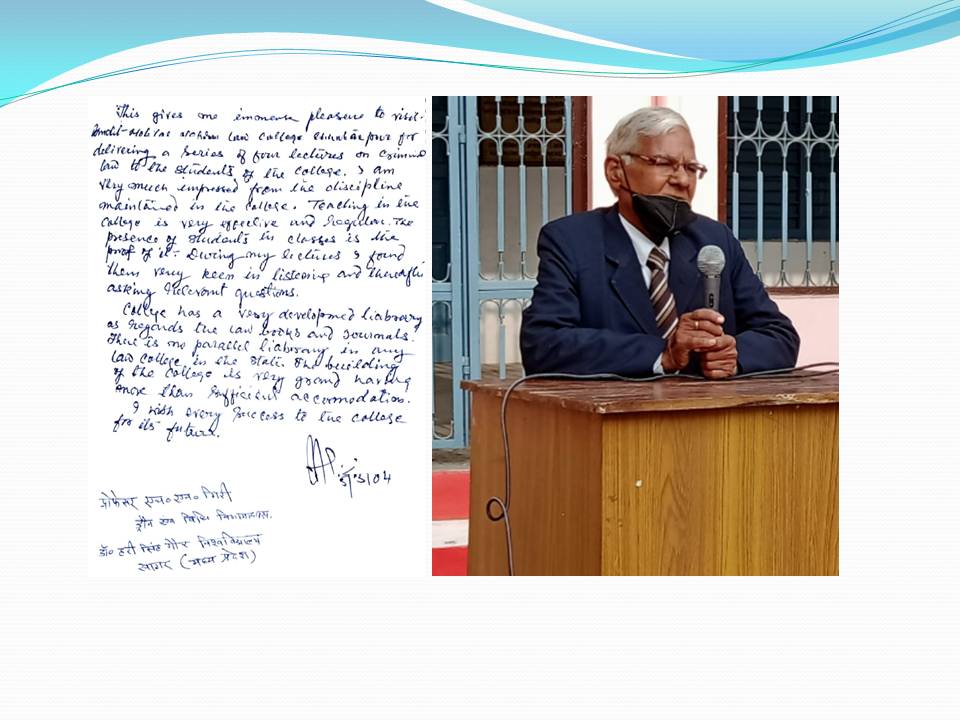 This gives me immense pleasure to visit
Law College for
delivering a series of four lectures on Criminal
law to the students of the college. I am
very much impressed from the discipline
maintained in the college. Teaching in the
college is very effective and regular. The
presence of students in classes is the
proof of it. During my lectures I found
them very keen in listening and
asking relevant questions.
College has a very developed liabrary
as regards the law books and journals.
There is no parallel liabrary in any
law college in the state. The building
of the college is very grand having
more than sufficient accomodation.
I wish every success to the college
for its future.
प्रोफेसर एच० एन० गिरी
डॉ० हरी सिंह गौर विश्वविद्यालय
सागर (मध्य प्रदेश)